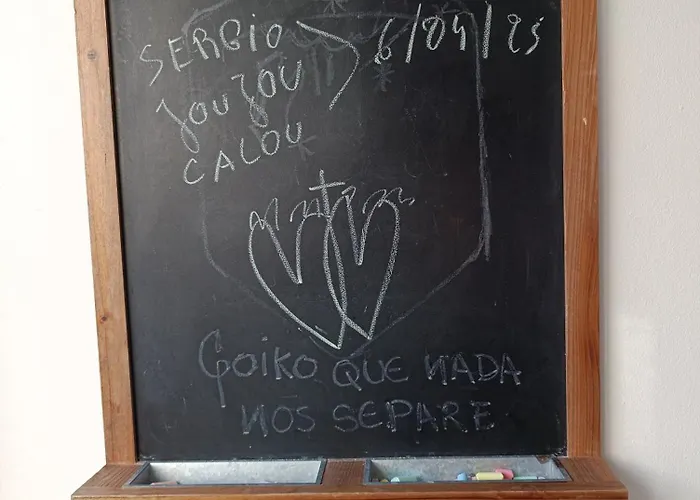 SERGIO 6/04/25
ZOUZOU
CALOU
GOIKO QUE NADA
NOS SEPARE